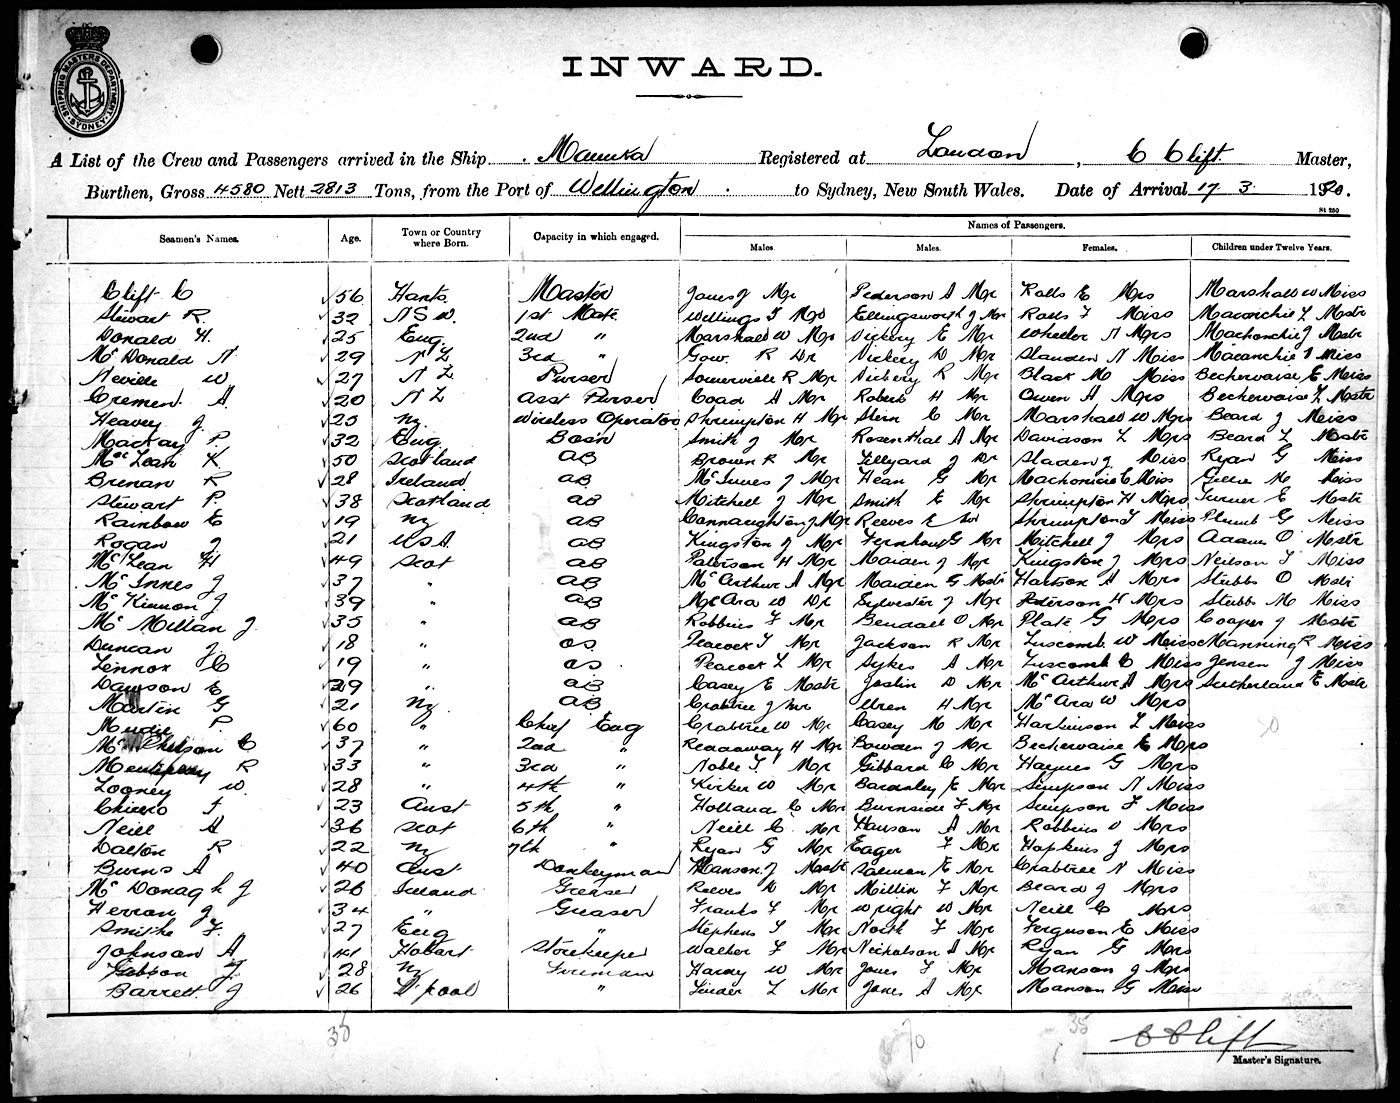 SHIPPING MASTERS DEPARTMENT SYDNEY
INWARD.
A List of the Crew and Passengers arrived in the Ship Manuka Registered at London, C Clift. Master,
Burthen, Gross 4580 Nett 2813 Tons, from the Port of Wellington to Sydney, New South Wales. Date of Arrival 17 3 1920.
St 250
Seamen's Names. Age. Town or Country where Born. Capacity in which engaged. Names of Passengers.
Males. Males. Females. Children under Twelve Years.
Clift C 56 Hants. Master Jones J Mr Pederson A Mr Rolls E Mrs Marshall W Miss
Stewart R. 32 N S W. 1st Mate Wellings T Mr Ellingsworth J Mr Rolls F Miss L Mastr
Donald H. 25 Eng. 2nd " Marshall W Mr Vickery E Mr Wheeler A Mrs J Mastr
McDonald N. 29 N Z 3rd " Gow. R Dr Vickery D Mr Sladden N Miss Miss
Neville W 27 N Z Purser Somerville R Mr Vickery R Mr Black M Miss Bechervaise E Miss
Cremen A. 20 N Z Asst Purser Coad A Mr Roberts H Mr Owen A Mrs Bechervaise L Mastr
Heavey J 25 NZ. Wireless Operator Shrimpton H Mr Stern C Mr Marshall W Mrs Beard J Miss
Mackay P. 32 Eng Bosn Smith J Mr Rosenthal A Mr Davidson L Mrs Beard L Mastr
McLean K. 50 Scotland AB Brown R Mr Tillyard J Dr Sladen J Miss Ryan G Miss
Brenan R 28 Ireland AB McInnes J Mr Hean G Mr E Miss M Miss
Stewart P. 38 Scotland AB Mitchell J Mr Smith E Mr Shrimpton H Mrs Turner E Mastr
Rainbow E 19 NZ AB Connaughton J Mr Reeves E Shrimpton F Miss Plumb G Miss
Rogan J 21 USA. AB Kingston J Mr G Mr Mitchell J Mrs Adams O Mastr
McLean H 49 Scot AB Paterson H Mr Maiden J Mr Kingston J Mrs Neilson F Miss
McInnes J 37 " AB McArthur A Mr Maiden G Mastr Hartson A Mrs Stubbs O Mastr
McKinnon J 39 " AB McAra W Dr Sylvester J Mr Pederson H Mrs Stubbs M Miss
McMillan J. 35 " AB Robbins F Mr Gendall O Mr Plate G Mrs Cooper J Mastr
Duncan J 18 " OS. Peacock T Mr Jackson R Mr Luscomb W Miss Manning R Miss
Lennox C 19 " OS Peacock L Mr Sykes A Mr Luscomb C Miss Jensen J Miss
Dawson E 29 " AB Casey E Mastr Joslin D Mr McArthur A Mrs Sutherland E Mastr
Martin G 21 NZ. AB Crabtree J Mr Uren H Mr McAra W Mrs
Mudie P 60 " Chief Eng Crabtree W Mr Casey M Mr Harkinson L Miss
C 37 " 2nd " Readaway H Mr Bowden J Mr Bechervaise E Mrs
R 33 " 3rd " Noble T. Mr Gibbard C Mr Haynes G Mrs
Looney W. 28 " 4th " Kirker W Mr Bardsley E Mr Simpson N Miss
F 23 Aust 5th " Holland C Mr Burnside F Mr Simpson F Miss
Neill A 36 Scot 6th " Neill C. Mr Hanson A Mr Robbins D Mrs
Dalton R 22 NZ 7th " Ryan G Mr Eager F Mr Hopkins J Mrs
Burns A 40 Aust Donkeyman Manson J Mastr Salmon E Mr Crabtree N Miss
McDonagh J 26 Ireland Greaser Reeves D Mr Millin F Mr Beard J Mrs
Herron J 34 " Greaser Franks F Mr Wright W Mr Neill C Mrs
Smithe F. 27 Eng " Stephens S Mr North F Mr Ferguson E Miss
Johnson A 41 Hobart Storekeeper Walker F Mr Nicholson A Mr Ryan G Mrs
Gibson J. 28 NZ Fireman Hardy W Mr Jones F Mr Manson J Mrs
Barrett. J 26 L'pool " Linder L Mr Jones A Mr Manson G Miss
35 70 35
C Clift
Master's Signature.